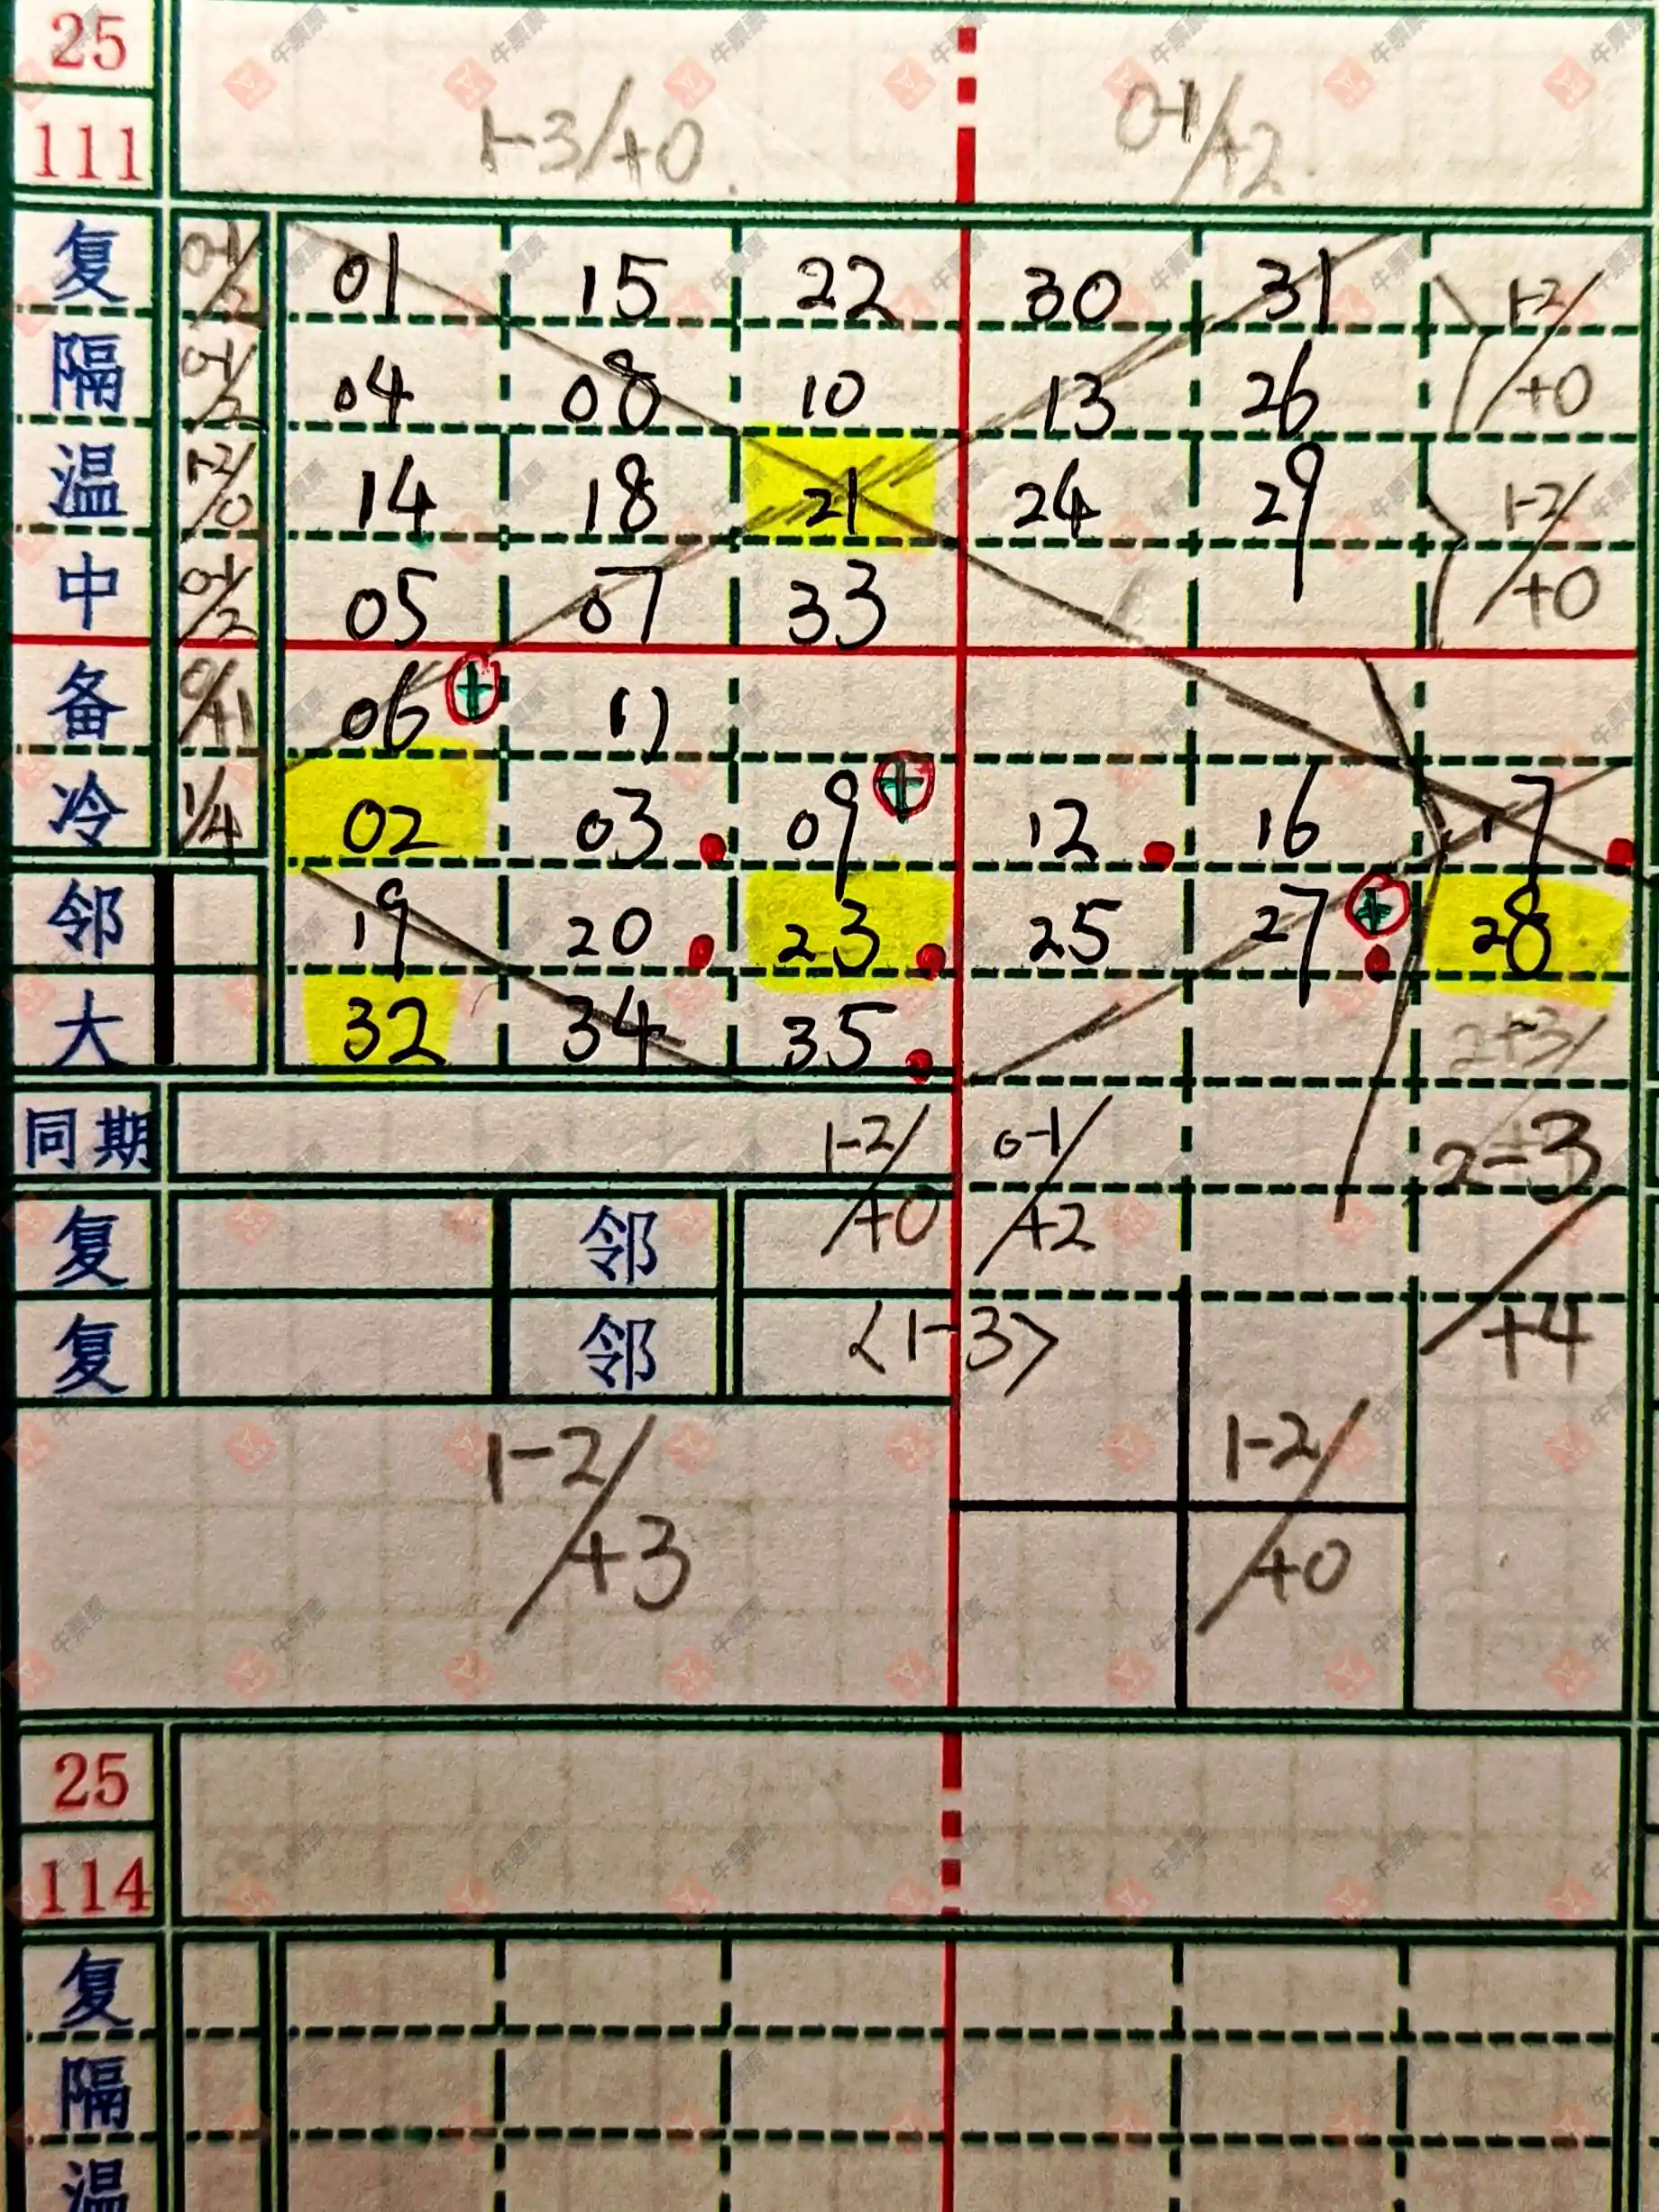 25
111 1-3/+0. 0-1/+2.
复 0-1/2 01 15 22 30 31 1-2/+0
隔 0-1/2 04 08 10 13 26
温 1-2/0 14 18 21 24 29 1-2/+0
中 0-1/2 05 07 33
备 0/+1 06 + 11
冷 1/4 02 03 09 + 12 16 17
邻 19 20 23 25 27 + 28
大 32 34 35 2-3/
同期 1-2/+0 0-1/+2 2-3/+4
复 邻
复 邻 <1-3>
1-2/+3 1-2/+0
25
114
复
隔
温
牛票票